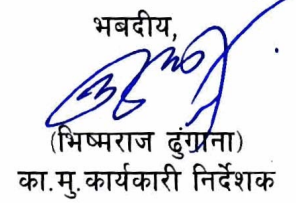 भबदीय,
(भिष्मराज ढुंगाना)
का.मु.कार्यकारी निर्देशक